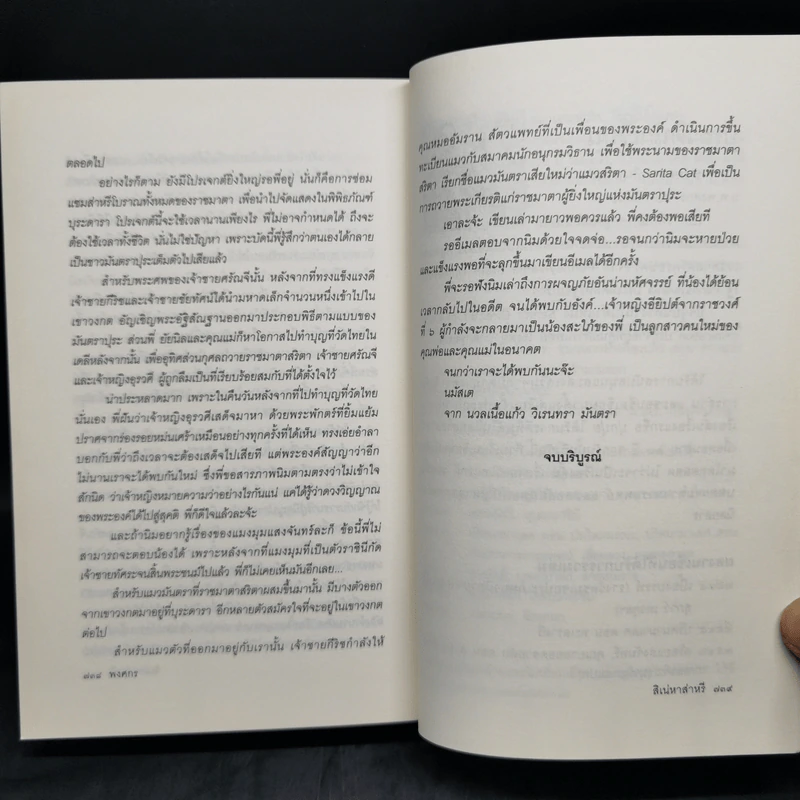 ตลอดไป
อย่างไรก็ตาม ยังมีโปรเจกต์ยิ่งใหญ่รอพี่อยู่ นั่นก็คือการซ่อม
แซมส่าหรีโบราณทั้งหมดของราชมาตา เพื่อนำไปจัดแสดงในพิพิธภัณฑ์
บุระดารา โปรเจกต์นี้จะใช้เวลานานเพียงไร พี่ไม่อาจกำหนดได้ ถึงจะ
ต้องใช้เวลาทั้งชีวิต นั่นไม่ใช่ปัญหา เพราะบัดนี้พี่รู้สึกว่าตนเองได้กลาย
เป็นชาวมันตราปุระเต็มตัวไปเสียแล้ว
สำหรับพระศพของเจ้าชายศรัณจีนั้น หลังจากที่ทรงแข็งแรงดี
เจ้าชายกีริชและเจ้าชายชัยทัศน์ได้นำมหาดเล็กจำนวนหนึ่งเข้าไปใน
เขาวงกต อัญเชิญพระอัฐิสัณฐานออกมาประกอบพิธีตามแบบของ
มันตราปุระ ส่วนพี่ ยัยนิลและคุณแม่ก็หาโอกาสไปทำบุญที่วัดไทยใน
เดลีหลังจากนั้น เพื่ออุทิศส่วนกุศลถวายราชมาตาสริตา เจ้าชายศรัณจี
และเจ้าหญิงอุรวศี ผู้ถูกลืมเป็นที่เรียบร้อยสมกับที่ได้ตั้งใจไว้
น่าประหลาดมาก เพราะในคืนวันหลังจากที่ไปทำบุญที่วัดไทย
นั่นเอง พี่ฝันว่าเจ้าหญิงอุรวศีเสด็จมาหา ด้วยพระพักตร์ที่ยิ้มแย้ม
ปราศจากร่องรอยหม่นเศร้าเหมือนอย่างทุกครั้งที่ได้เห็น ทรงเอ่ยอำลา
บอกกับพี่ว่าถึงเวลาจะต้องเสด็จไปเสียที แต่พระองค์สัญญาว่าอีก
ไม่นานเราจะได้พบกันใหม่ ซึ่งพี่ขอสารภาพนิมตามตรงว่าไม่เข้าใจ
สักนิด ว่าเจ้าหญิงหมายความว่าอย่างไรกันแน่ แค่ได้รู้ว่าดวงวิญญาณ
ของพระองค์ได้ไปสู่สุคติ พี่ก็ดีใจแล้วละจ้ะ
และถ้านิมอยากรู้เรื่องของแมงมุมแสงจันทร์ละก็ ข้อนี้พี่ไม่
สามารถจะตอบน้องได้ เพราะหลังจากที่แมงมุมที่เป็นตัวราชินีกัด
เจ้าชายทัศระจนสิ้นพระชนม์ไปแล้ว พี่ก็ไม่เคยเห็นมันอีกเลย...
สำหรับแมวมันตราที่ราชมาตาสริตาผสมขึ้นมานั้น มีบางตัวออก
จากเขาวงกตมาอยู่ที่บุระดารา อีกหลายตัวสมัครใจที่จะอยู่ในเขาวงกต
ต่อไป
สำหรับแมวตัวที่ออกมาอยู่กับเรานั้น เจ้าชายกีริชกำลังให้
๗๓๘ พงศกร
คุณหมออัมราน สัตวแพทย์ที่เป็นเพื่อนของพระองค์ ดำเนินการขึ้น
ทะเบียนแมวกับสมาคมนักอนุกรมวิธาน เพื่อใช้พระนามของราชมาตา
สริตา เรียกชื่อแมวมันตราเสียใหม่ว่าแมวสริตา - Sarita Cat เพื่อเป็น
การถวายพระเกียรติแก่ราชมาตาผู้ยิ่งใหญ่แห่งมันตราปุระ
เอาละจ้ะ เขียนเล่ามายาวพอควรแล้ว พี่คงต้องพอเสียที
รออีเมลตอบจากนิมด้วยใจจดจ่อ...รอจนกว่านิมจะหายป่วย
และแข็งแรงพอที่จะลุกขึ้นมาเขียนอีเมลได้อีกครั้ง
พี่จะรอฟังนิมเล่าถึงการผจญภัยอันน่ามหัศจรรย์ ที่น้องได้ย้อน
เวลากลับไปในอดีต จนได้พบกับอังค์...เจ้าหญิงอียิปต์จากราชวงศ์
ที่ ๖ ผู้กำลังจะกลายมาเป็นน้องสะใภ้ของพี่ เป็นลูกสาวคนใหม่ของ
คุณพ่อและคุณแม่ในอนาคต
จนกว่าเราจะได้พบกันนะจ๊ะ
นมัสเต
จาก นวลเนื้อแก้ว วิเรนทรา มันตรา
จบบริบูรณ์
สิเน่หาส่าหรี ๗๓๙